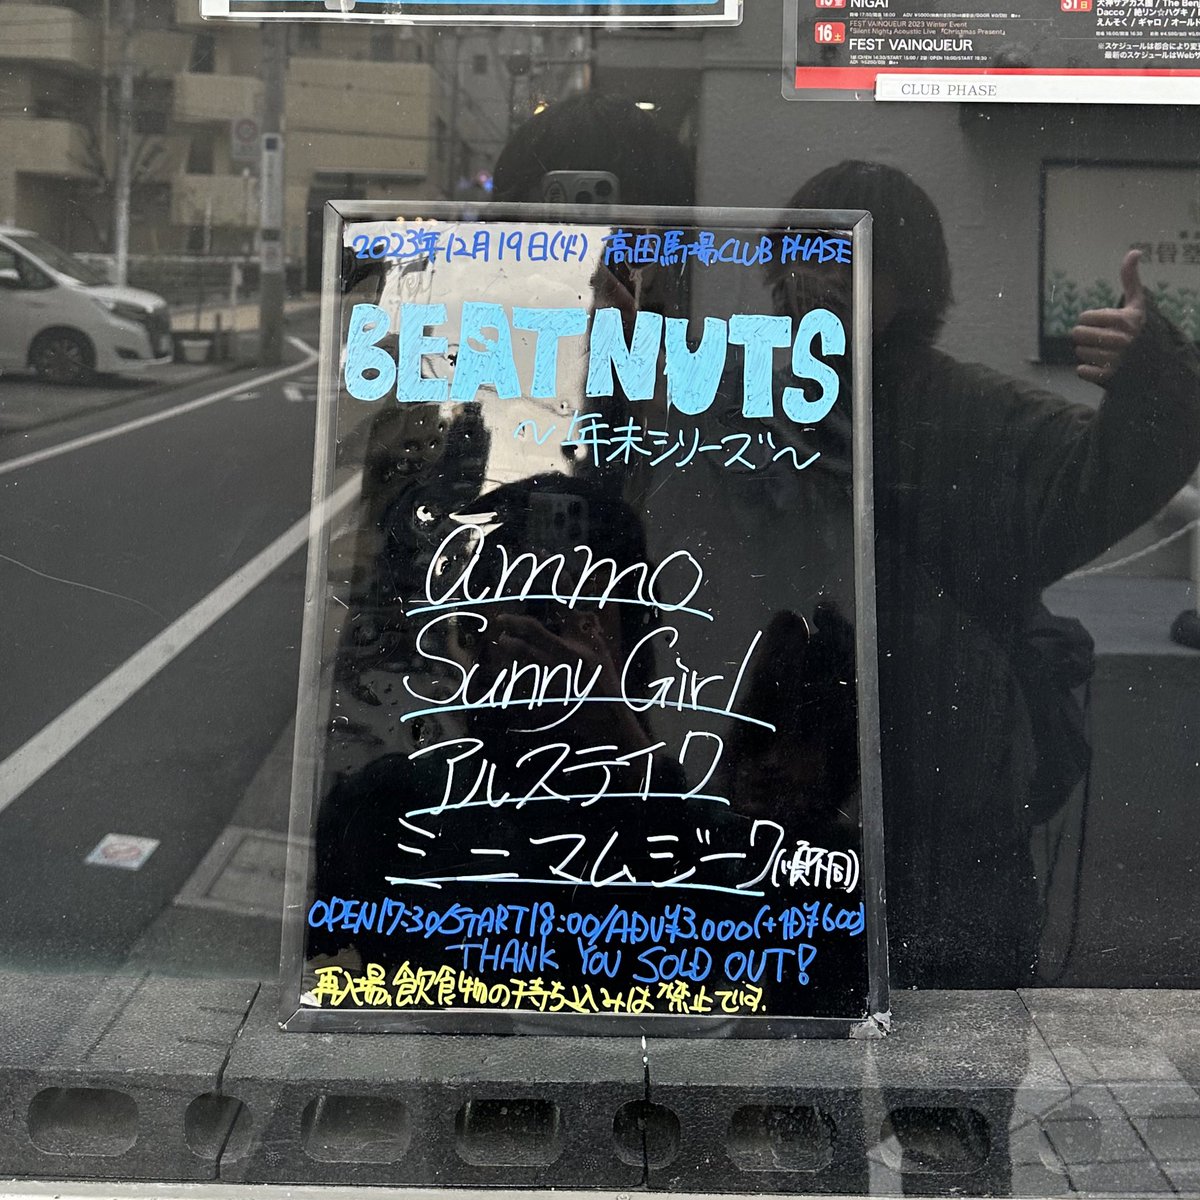 NIGAI
16 土
FEST VAINQUEUR 2023 Winter Event
「Silent Night」 Acoustic Live 「Christmas Present」
FEST VAINQUEUR
31 日
Dacco / 絶リン☆ハグキ /
えんそく / ギャロ / オールド
※スケジュールは都合により変
最新のスケジュールはWebサ
CLUB PHASE
2023年12月19日(火) 高田馬場CLUB PHASE
BEATNUTS
〜年末シリーズ〜
ammo
Sunny Girl
アルステイク
ミニマムジーク(順不同)
OPEN17:30/START18:00/ADV¥3.000(+1D¥600)
THANK YOU SOLD OUT!
再入場、飲食物の持ち込みは禁止です.